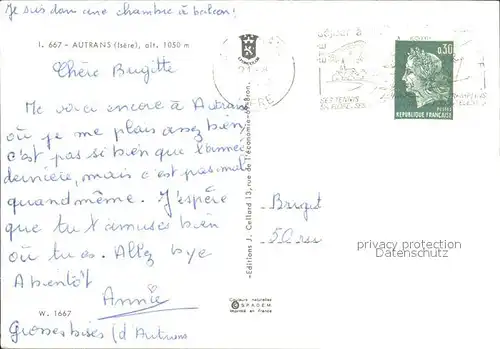 Je suis dans une chambre à balcon!
I. 667 - AUTRANS (Isère), alt. 1050 m
Chère Brigitte
Me voici encore à Autrans
où je me plais assez bien
c'est pas si bien que l'année
dernière, mais c'est pas mal
quand même. J'espère
que tu t'amuses bien
où tu es. Allez bye
A bientôt
Annie
W. 1667
Grosses bises (d'Autrans
-Editions J. Cellard 13, rue de l'électricité-Bron.
Couleurs naturelles
© SPADEM
Imprimé en France
ÉTÉ
0,30
POSTES
REPUBLIQUE FRANÇAISE
privacy protection
Datenschutz